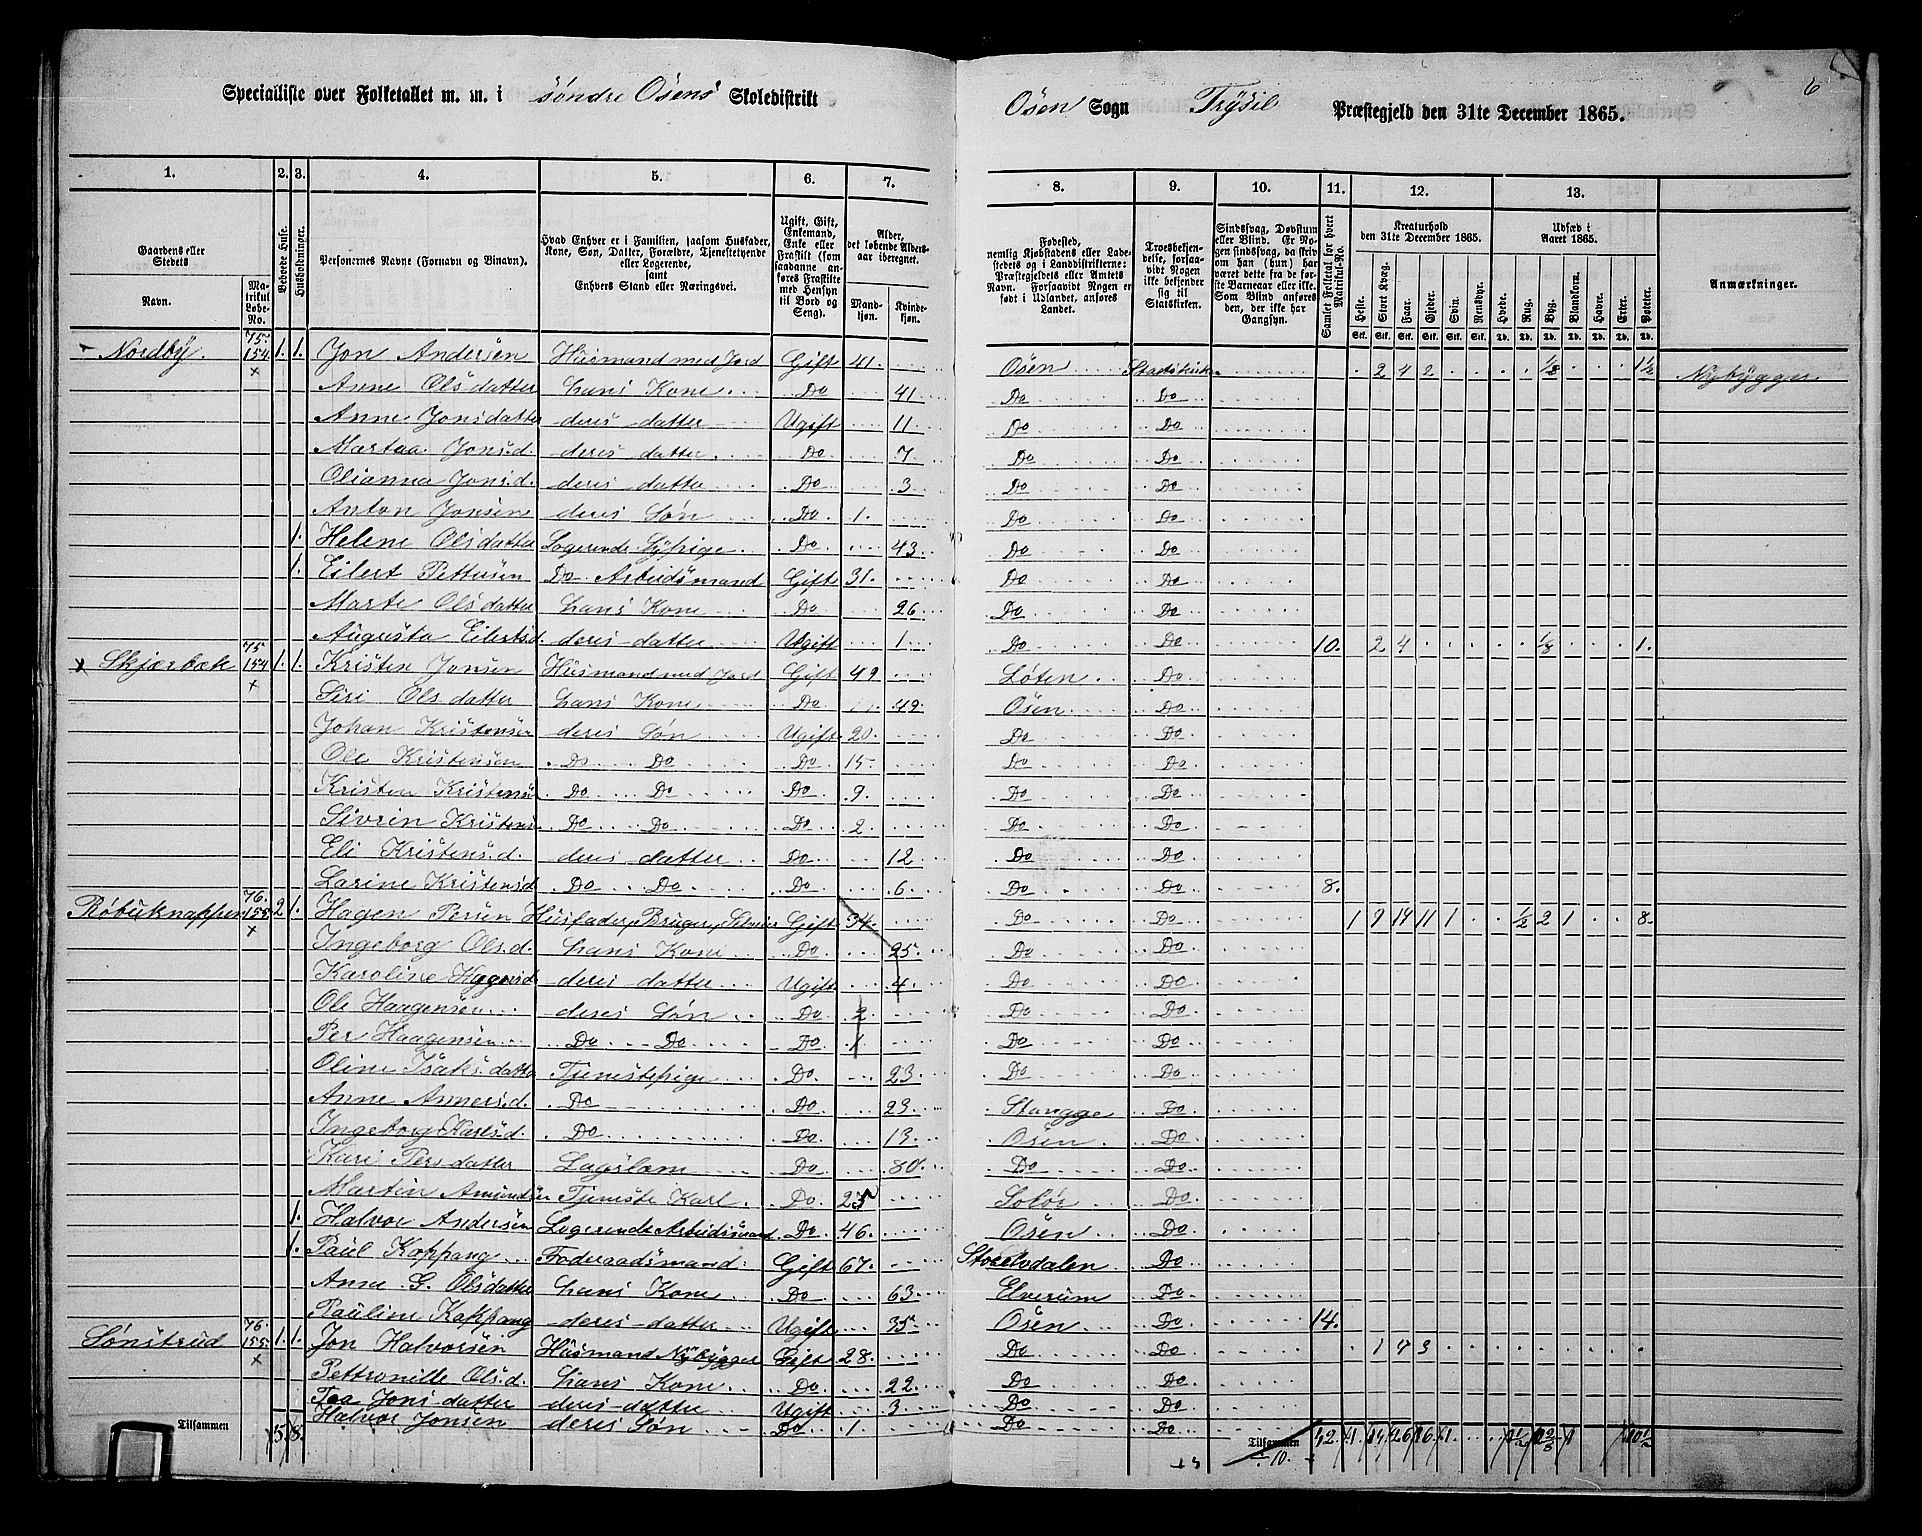 6
Specialliste over Folketallet m. m. i søndre Osens Skoledistrikt Osen Sogn Trysil Præstegjeld den 31te December 1865.
1. 2. 3. 4. 5. 6. 7. 8. 9. 10. 11. 12. 13.
Gaardens eller Stedets
Navn. Matrikul Løbe-No. Beboede Huse. Husholdninger. Personernes Navne (Fornavn og Binavn). Hvad Enhver er i Familien, saasom Husfader, Kone, Søn, Datter, Forældre, Tjenestetyende eller Logerende, samt Enhvers Stand eller Næringsvei. Ugift, Gift, Enkemand, Enke eller Fraskilt (som saadanne anføres Fraskilte med Hensyn til Bord og Seng). Alder, det løbende Alders- aar iberegnet. Mandkjøn. Kvindekjøn.
Fødested, nemlig Kjøbstadens eller Ladestedets og i Landdistrikterne: Præstegjeldets eller Amtets Navn. Forsaavidt Nogen er født i Udlandet, anføres Landet. Troesbekjendelse, forsaavidt Nogen ikke bekjender sig til Statskirken. Sindssvag, Døvstum eller Blind. Er Nogen sindssvag, da skriv om han (hun) har været dette fra de første Barneaar eller ikke. Som Blind anføres den, der ikke har Gangsyn. Samlet Folketal for hvert Matrikul-No. Kreaturhold den 31te December 1865. Heste. Stort Kvæg. Faar. Gjeder. Svin. Rensdyr. Udsæd i Aaret 1865. Hvede. Rug. Byg. Blandkorn. Havre. Erter. Poteter. Anmærkninger.
Nordby. 75. 154 1. 1. Jon Andersen Husmand med Jord Gift 41. Osen Statskirken 2 4 2 1/8 1 1/2 Nybygger
Anne Olsdatter hans Kone. Do 41 Do Do
Anne Jonsdatter deres datter Ugift 11 Do Do
Martaa Jonsd. deres datter. Do 7 Do Do
Olianna Jonsd. deres datter Do 3 Do Do
Anton Jonsen deres Søn Do 1. Do Do
1. Helene Olsdatter Logerende Sypige Do 43 Do Do
1. Eilert Pettersen Do Arbeidsmand Gift 31. Do Do
Marte Olsdatter hans Kone Do 26 Do Do
Augusta Eilertsd. deres datter Ugift 1. Do Do 10. 2 4 1/8 1.
Skjærbæk 75 154 1. 1. Kristen Jonsen Husmand med Jord Gift 49 Løten Do
Siri Olsdatter hans Kone Do 49 Osen Do
Johan Kristensen deres Søn Ugift 20 Do Do
Ole Kristensen Do Do Do 15 Do Do
Kristen Kristensen Do Do Do 9. Do Do
Sivrin Kristens Do Do Do 2 Do Do
Eli Kristensd. deres datter Do 12 Do Do
Larine Kristensd Do Do Do 6 Do Do 8.
Røbuknappen 76. 155 2 1. Hagen Persen Husfader, Bruger, Selveier Gift 34. Do Do 1 9 14 11 1 1/2 2 1 8
Ingeborg Olsd. hans Kone Do 25 Do Do
Karoline Hagensd deres datter Ugift 4 Do Do
Ole Haagensen deres Søn Do 2 Do Do
Per Haagensen Do Do Do 1 Do Do
Oline Isaksdatter Tjenestepige Do 23 Do Do
Anne Annersd. Do Do 23 Stangge Do
Ingeborg Karlsd. Do Do 13 Osen Do
Kari Persdatter Lagslem Do 80 Do Do
Martin Amundsen Tjeneste Karl Do 25 Soløer Do
1. Halvor Andersen Logerende Arbeidsmand Do 46. Osen Do
1. Paul Koppang Føderaadsmand Gift 67. Storelvdalen Do
Anne G. Olsdatter hans Kone Do 63 Elverum Do
Pauline Koppang deres datter Ugift 35 Osen Do 14.
Sønstrud 76. 155 1. 1. Jon Halvorsen Husmand Nybygger Gift 28. Do Do 1 4 3
Pettronille Olsd. hans Kone Do 22 Do Do
Jonsdatter deres datter Ugift 3 Do Do
Halvor Jonsen deres Søn Do 1. Do Do
Tilsammen 5. 8. Tilsammen 42. 1. 14 26 16 1. 10 1/2
10.